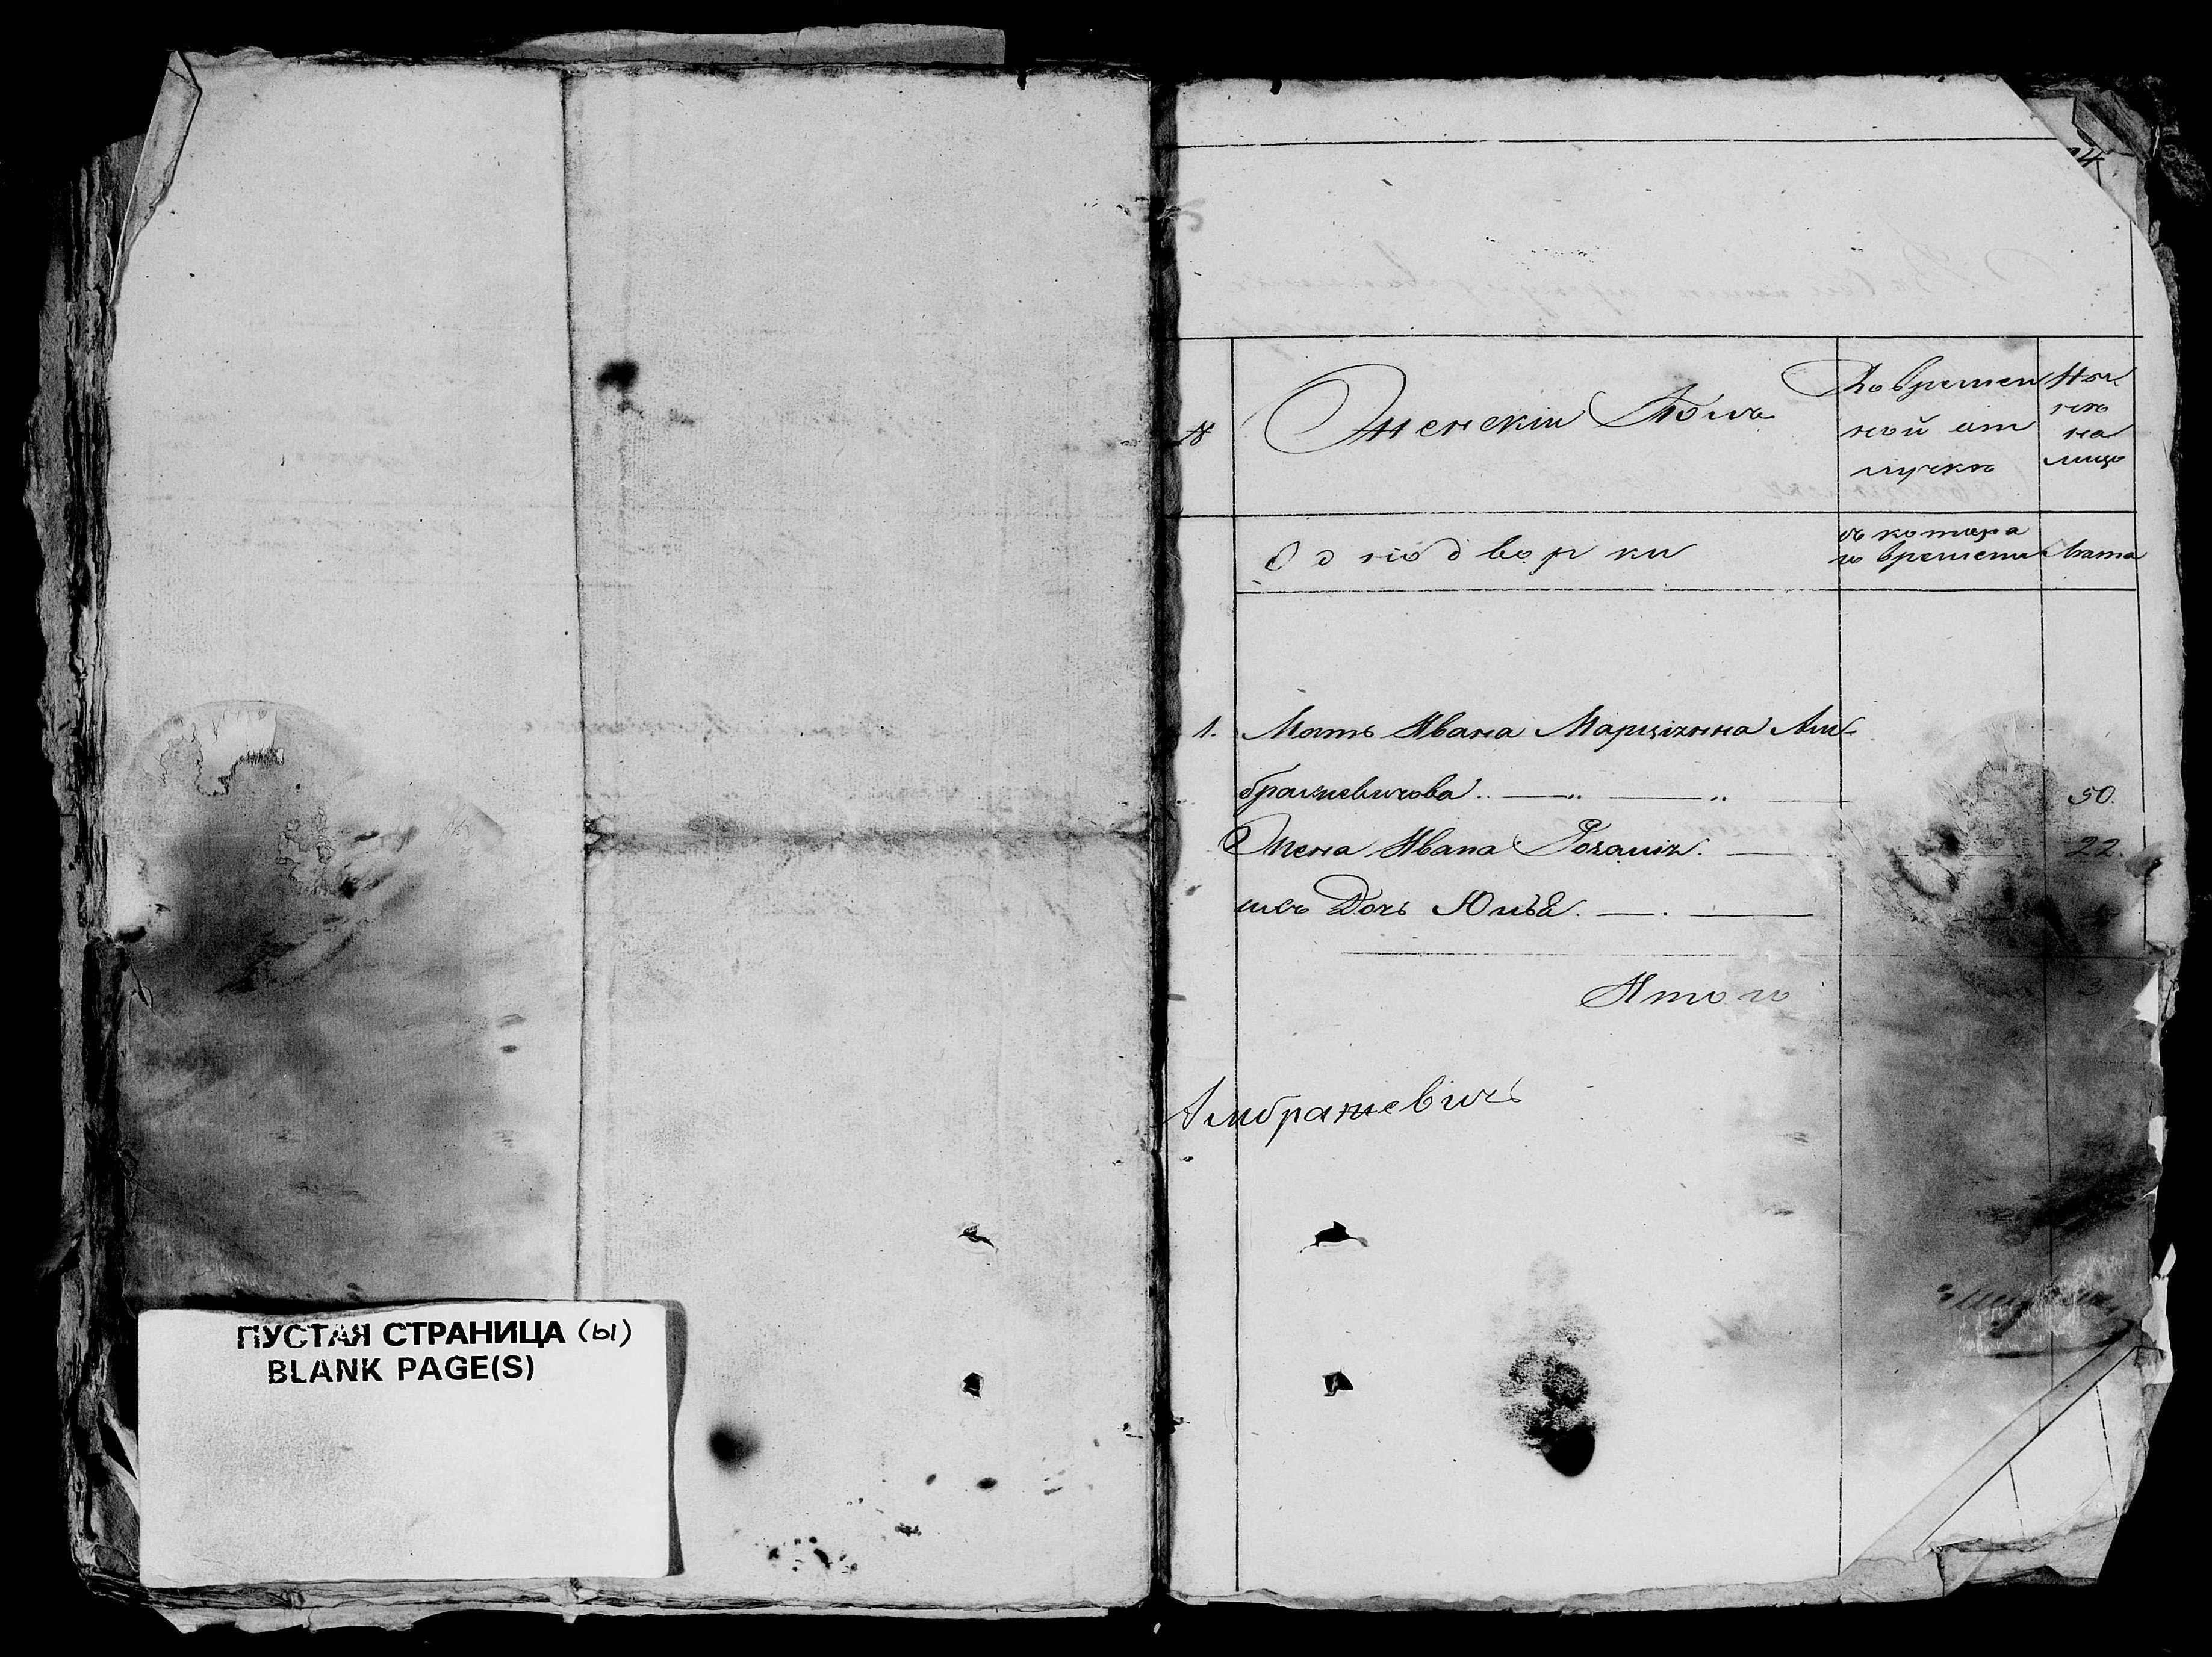 ПУСТАЯ СТРАНИЦА (ы)
BLANK PAGE(S)
№
Женскій Полъ
Во времен
ной от
лучкѣ
Ны
нѣ
на
лицо
Однодворки
съ котора
го времени
лата
1. Мать Ивана Марціянна Ам-
бражевичова 50.
Жена Ивана Розалія. 22.
ихъ Дочь Юлія.
Итого 3
Амбражевичъ